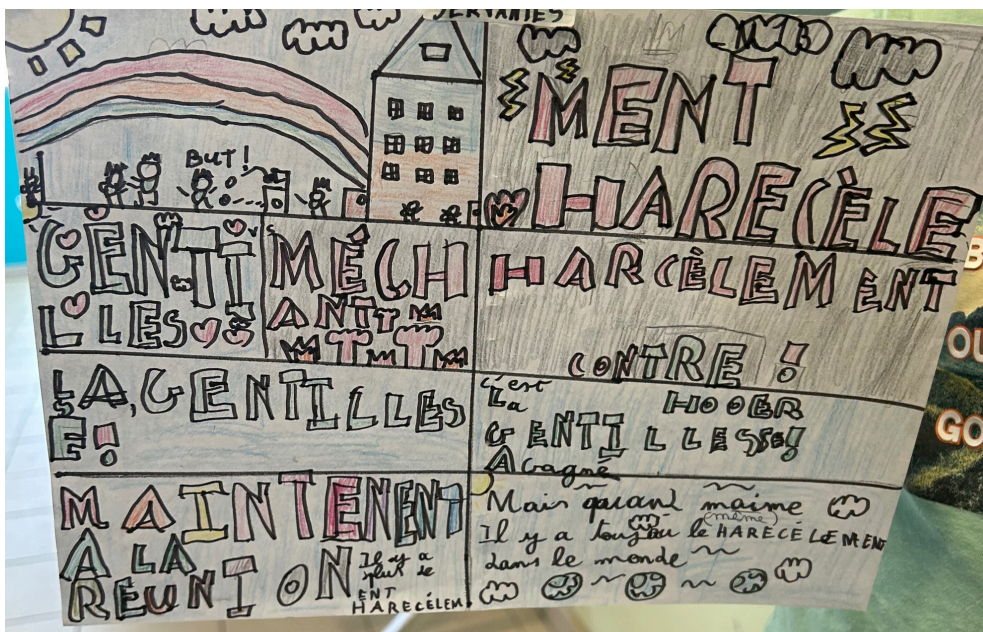 SERVANTES
BUT!
MENT
HARECÈLE
GENTI
LLES
MÉCH
ANTT
TT
HARCÈLEMENT
CONTRE !
LA, GENTILLES
SE!
c'est
La HOOER
GENTILLESSE!
A Gagné
MAINTENENT
A LA
RÉUNION
Il y a
plus le
ENT
HARECÉLEM
Mais quand maime
(même)
Il y a toujou le HARECÉLEMENT
dans le monde
B
OU
GO